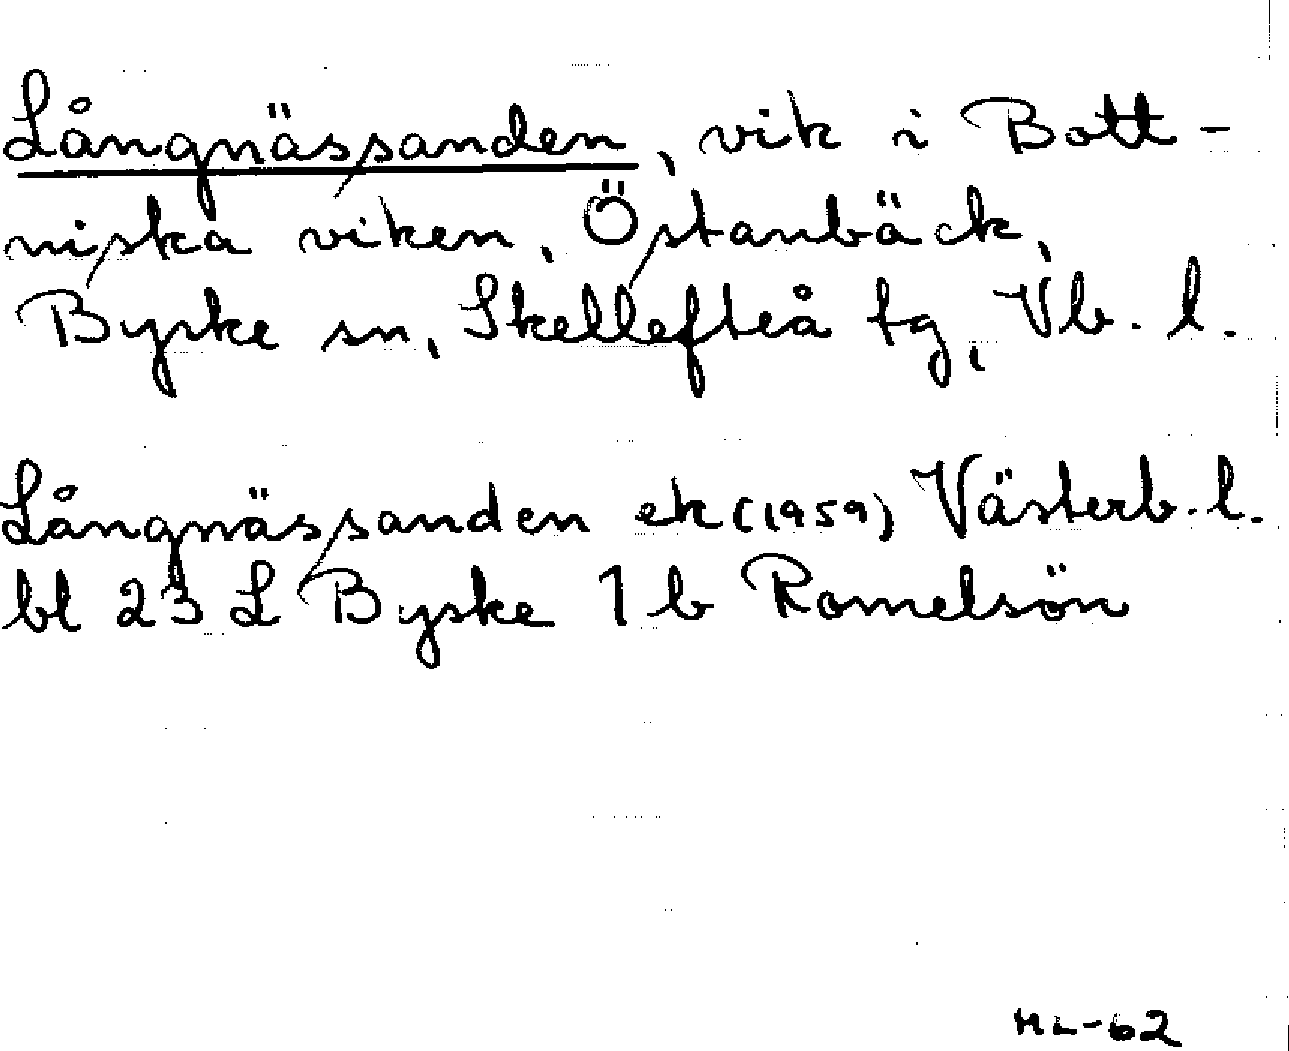 Långnässanden, vik i Bott-
niska viken, Östanbäck,
Byske sn, Skellefteå tg, Vb. l.
Långnässanden ek (1959) Västerb. l.
bl 23 L Byske 1 b Romelsön
ML-62